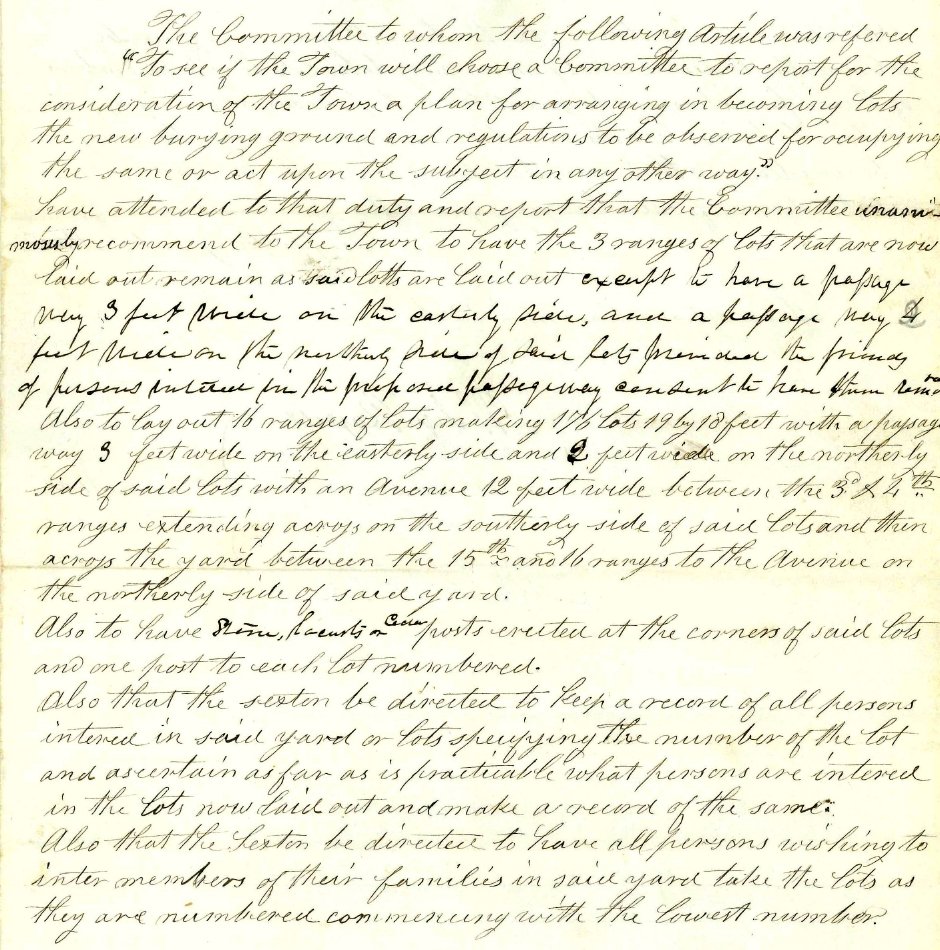 The Committee to whom the following Article was refered
"To see if the Town will choose a Committee to report for the
consideration of the Town a plan for arranging in becoming lots
the new burying ground and regulations to be observed for ocupying
the same or act upon the subject in any other way."
have attended to that duty and report that the Committee unani-
mously recommend to the Town to have the 3 ranges of lots that are now
laid out remain as said lotts are laid out except to have a passage
way 3 feet wide on the easterly side, and a passage way 2
feet wide on the northerly side of said lots provided the friends
of persons intered in the proposed passageway consent to have them
Also to lay out 16 ranges of lots making 176 lots 19 by 18 feet with a passage
way 3 feet wide on the easterly side and 2 feet wide on the northerly
side of said lots with an Avenue 12 feet wide between the 3d & 4th
ranges extending across on the southerly side of said lots and then
across the yard between the 15th and 16 ranges to the Avenue on
the northerly side of said yard.
Also to have Stone, Locusts or Cedar posts erected at the corners of said lots
and one post to each lot numbered.
Also that the sexton be directed to keep a record of all persons
intered in said yard or lots specifying the number of the lot
and ascertain as far as is practicable what persons are intered
in the lots now laid out and make a record of the same.
Also that the Sexton be directed to have all persons wishing to
inter members of their families in said yard take the lots as
they are numbered commencing with the lowest number.